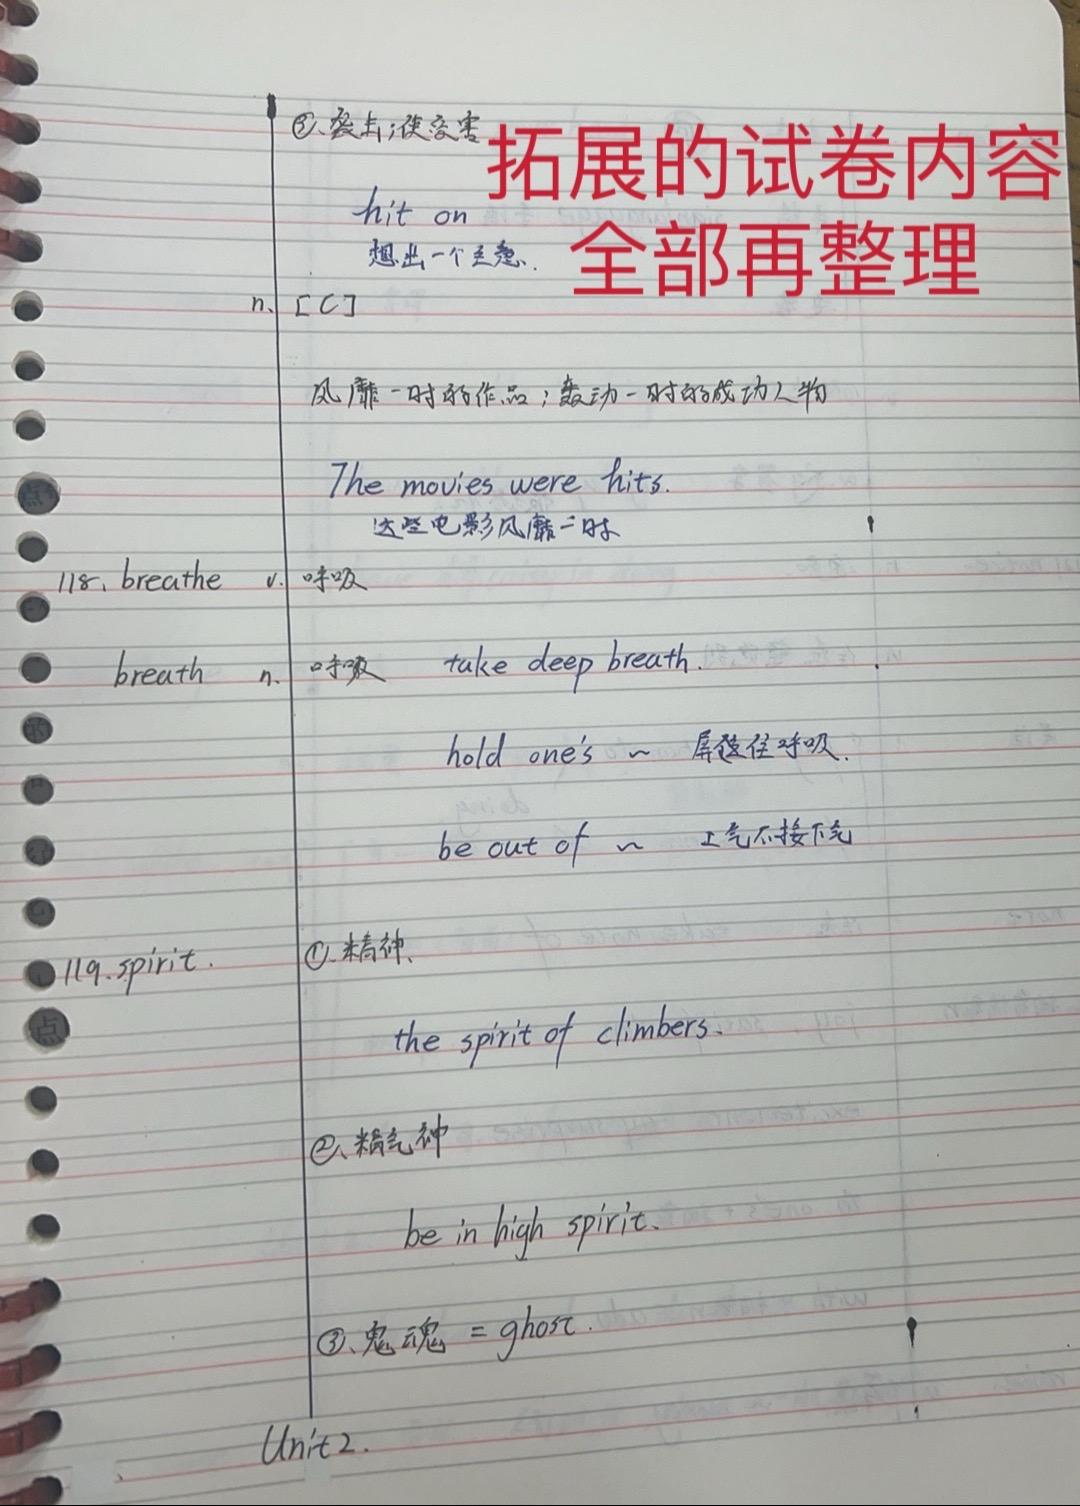 ②、袭击；使受害
拓展的试卷内容
全部再整理
hit on
想出一个主意.
n. [C]
风靡一时的作品；轰动一时的成功人物
The movies were hits.
这些电影风靡一时
118. breathe v. 呼吸
breath n. 呼吸 take deep breath.
hold one's ~ 屏住呼吸.
be out of ~ 上气不接下气
119. spirit. ①.精神、
the spirit of climbers.
②、精气神
be in high spirit.
③、鬼魂 = ghost.
Unit 2.